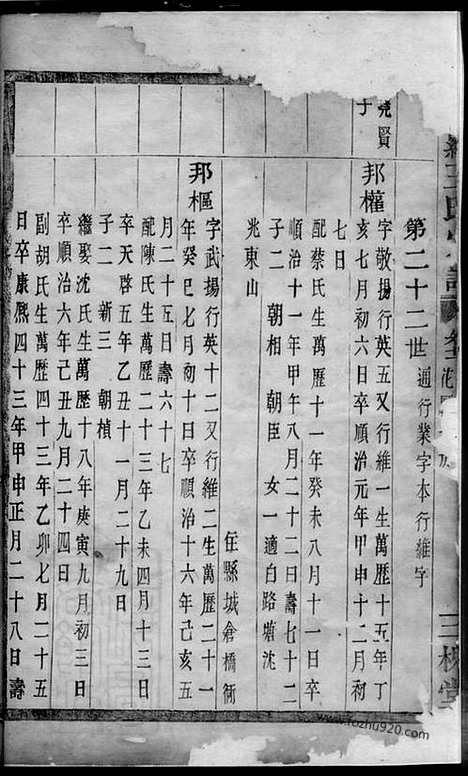 第二十二世 通行業字本行維字
堯賢子
邦權 字敬揚行英五又行維一生萬歷十五年丁
亥七月初六日卒順治元年甲申十二月初
七日
配蔡氏生萬歷十一年癸未八月十一日卒
順治十一年甲午八月二十二日壽七十二
子二 朝相 朝臣 女一適白路塘沈
兆東山
住縣城倉橋衖
邦樞 字武揚行英十二又行維二生萬歷二十一
年癸巳七月初十日卒順治十六年己亥五
月二十五日壽六十七
配陳氏生萬歷二十三年乙未四月十三日
卒天啓五年乙丑十一月二十九日
子二 新三 朝楨
繼娶沈氏生萬歷十八年庚寅九月初三日
卒順治六年己丑九月二十四日
副胡氏生萬歷四十三年乙卯七月二十五
日卒康熙四十三年甲申正月二十八日壽
www.fozhu920.com